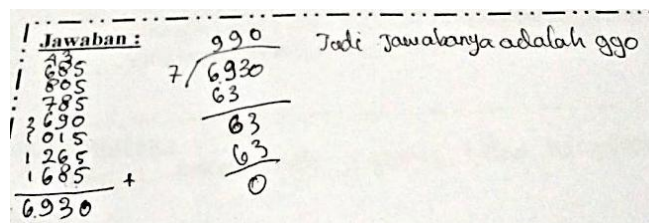 Jawaban :
43
685
805
785
690
1015
1265
1685
+
6.930
990
7 / 6.930
63
63
63
0
Jadi Jawabanya adalah 990